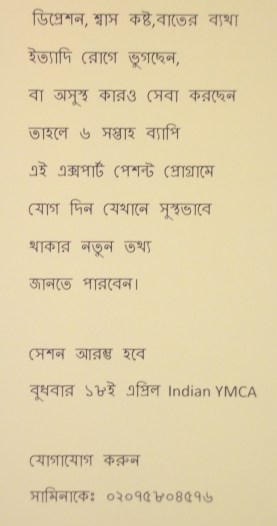 ডিপ্রেশন, শ্বাস কষ্ট,বাতের ব্যথা
ইত্যাদি রোগে ভুগছেন,
বা অসুস্থ কারও সেবা করছেন
তাহলে ৬ সপ্তাহ ব্যাপি
এই এক্সপার্ট পেশন্ট প্রোগ্রামে
যোগ দিন যেখানে সুস্থভাবে
থাকার নতুন তথ্য
জানতে পারবেন।
সেশন আরম্ভ হবে
বুধবার ১৮ই এপ্রিল Indian YMCA
যোগাযোগ করুন
সামিনাকেঃ ০২০৭৫৮০৪৫৭৬